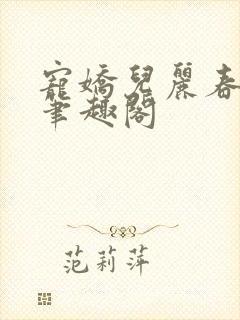 寵嬌兒麗春
筆趣閣
范莉萍